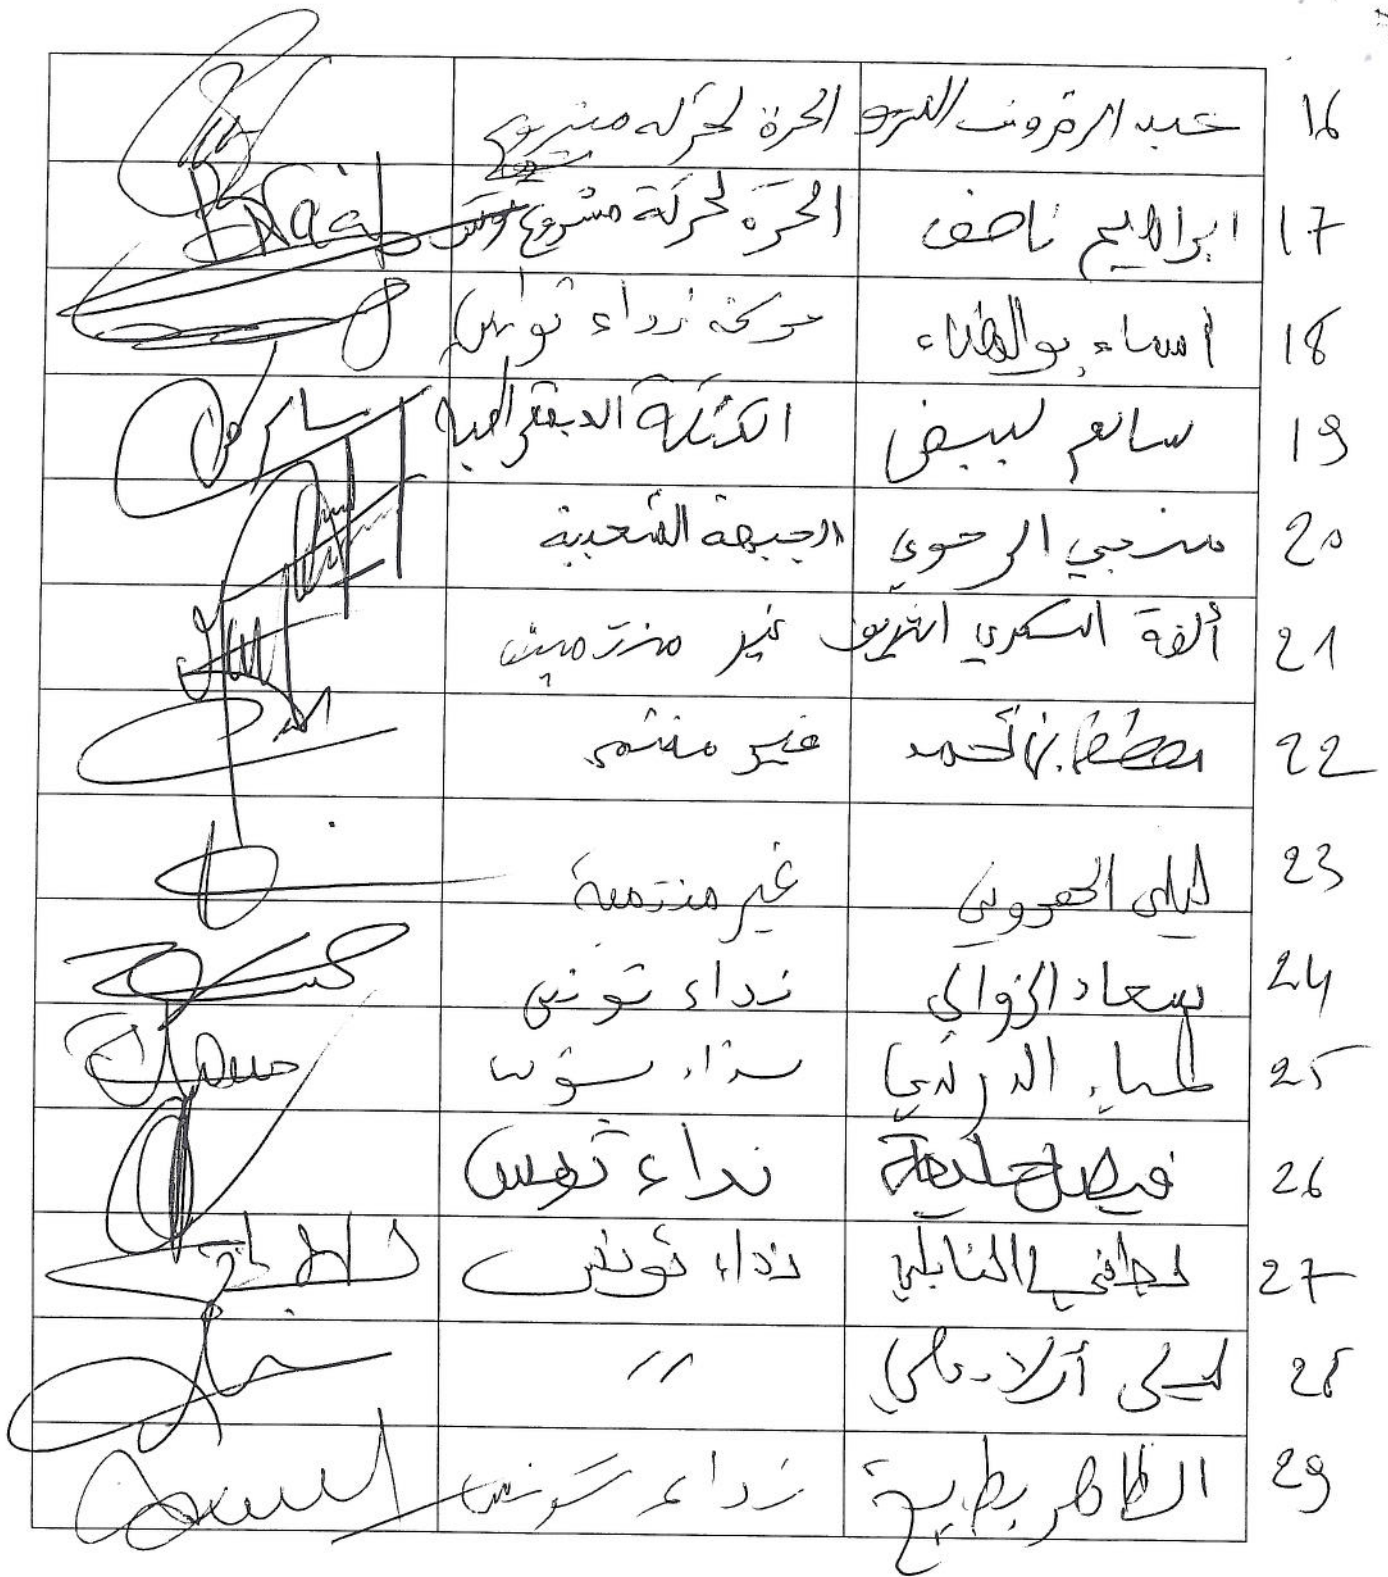 16 عبد الرؤوف الحرة لحركة مشروع
تونس
17 ابراهيم ناصف الحرة لحركة مشروع تونس
18 أسماء بوالهناء حركة نداء تونس
19 سالم لبيض الكتلة الديمقراطية
20 منجي الرحوي الجبهة الشعبية
21 ألفة السكري الشريف غير منتمين
22 مصطفى بن أحمد غير منتمي
23 ليلى الحمروني غير منتمية
24 سعاد الزوالي نداء تونس
25 لمياء الدريدي نداء تونس
26 فيصل خليفة نداء تونس
27 لطفي النابلي نداء تونس
28 ليلى أولاد علي //
29 الطاهر بطيخ نداء تونس